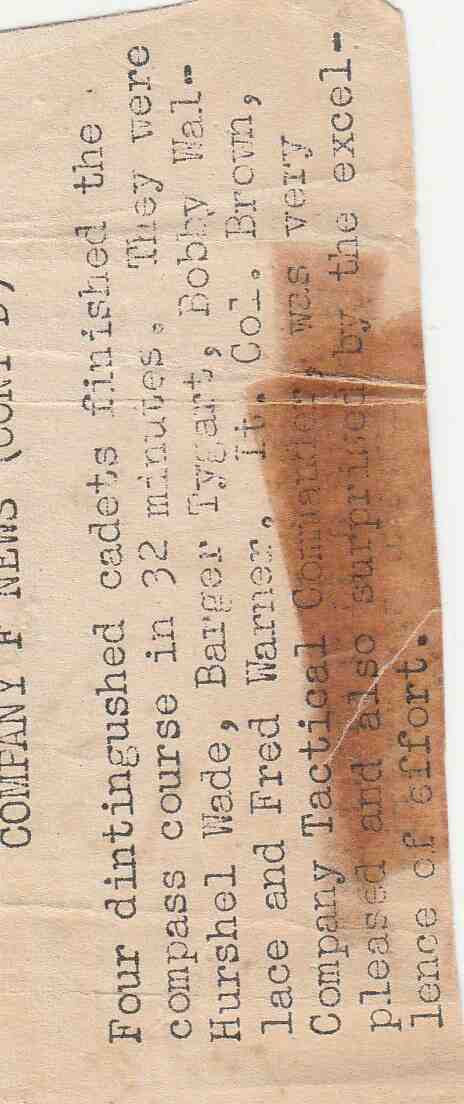 COMPANY F NEWS (CONT'D)
Four dintingushed cadets finished the
compass course in 32 minutes. They were
Hurshel Wade, Barger Tygart, Bobby Wal-
lace and Fred Warner. Lt. Col. Brown,
Company Tactical Commander, was very
pleased and also surprised by the excel-
lence of effort.